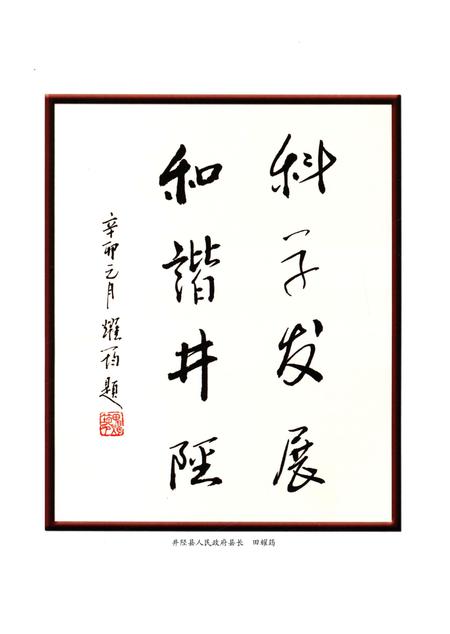 科学发展
和谐井陉
辛卯元月 耀筠题
井陉县人民政府县长 田耀筠